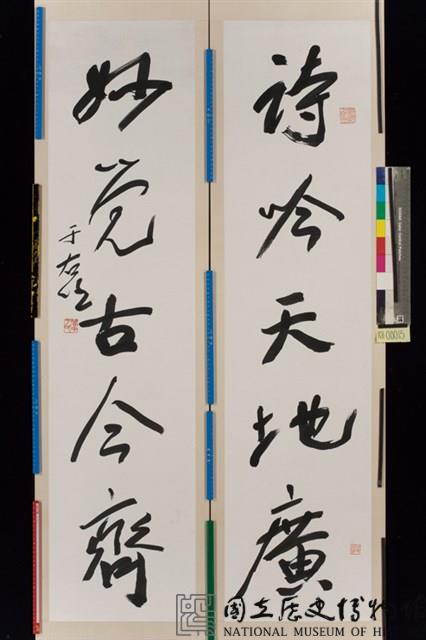 詩吟天地廣
妙覺古今齊
于右任
國立歷史博物館
NATIONAL MUSEUM OF H